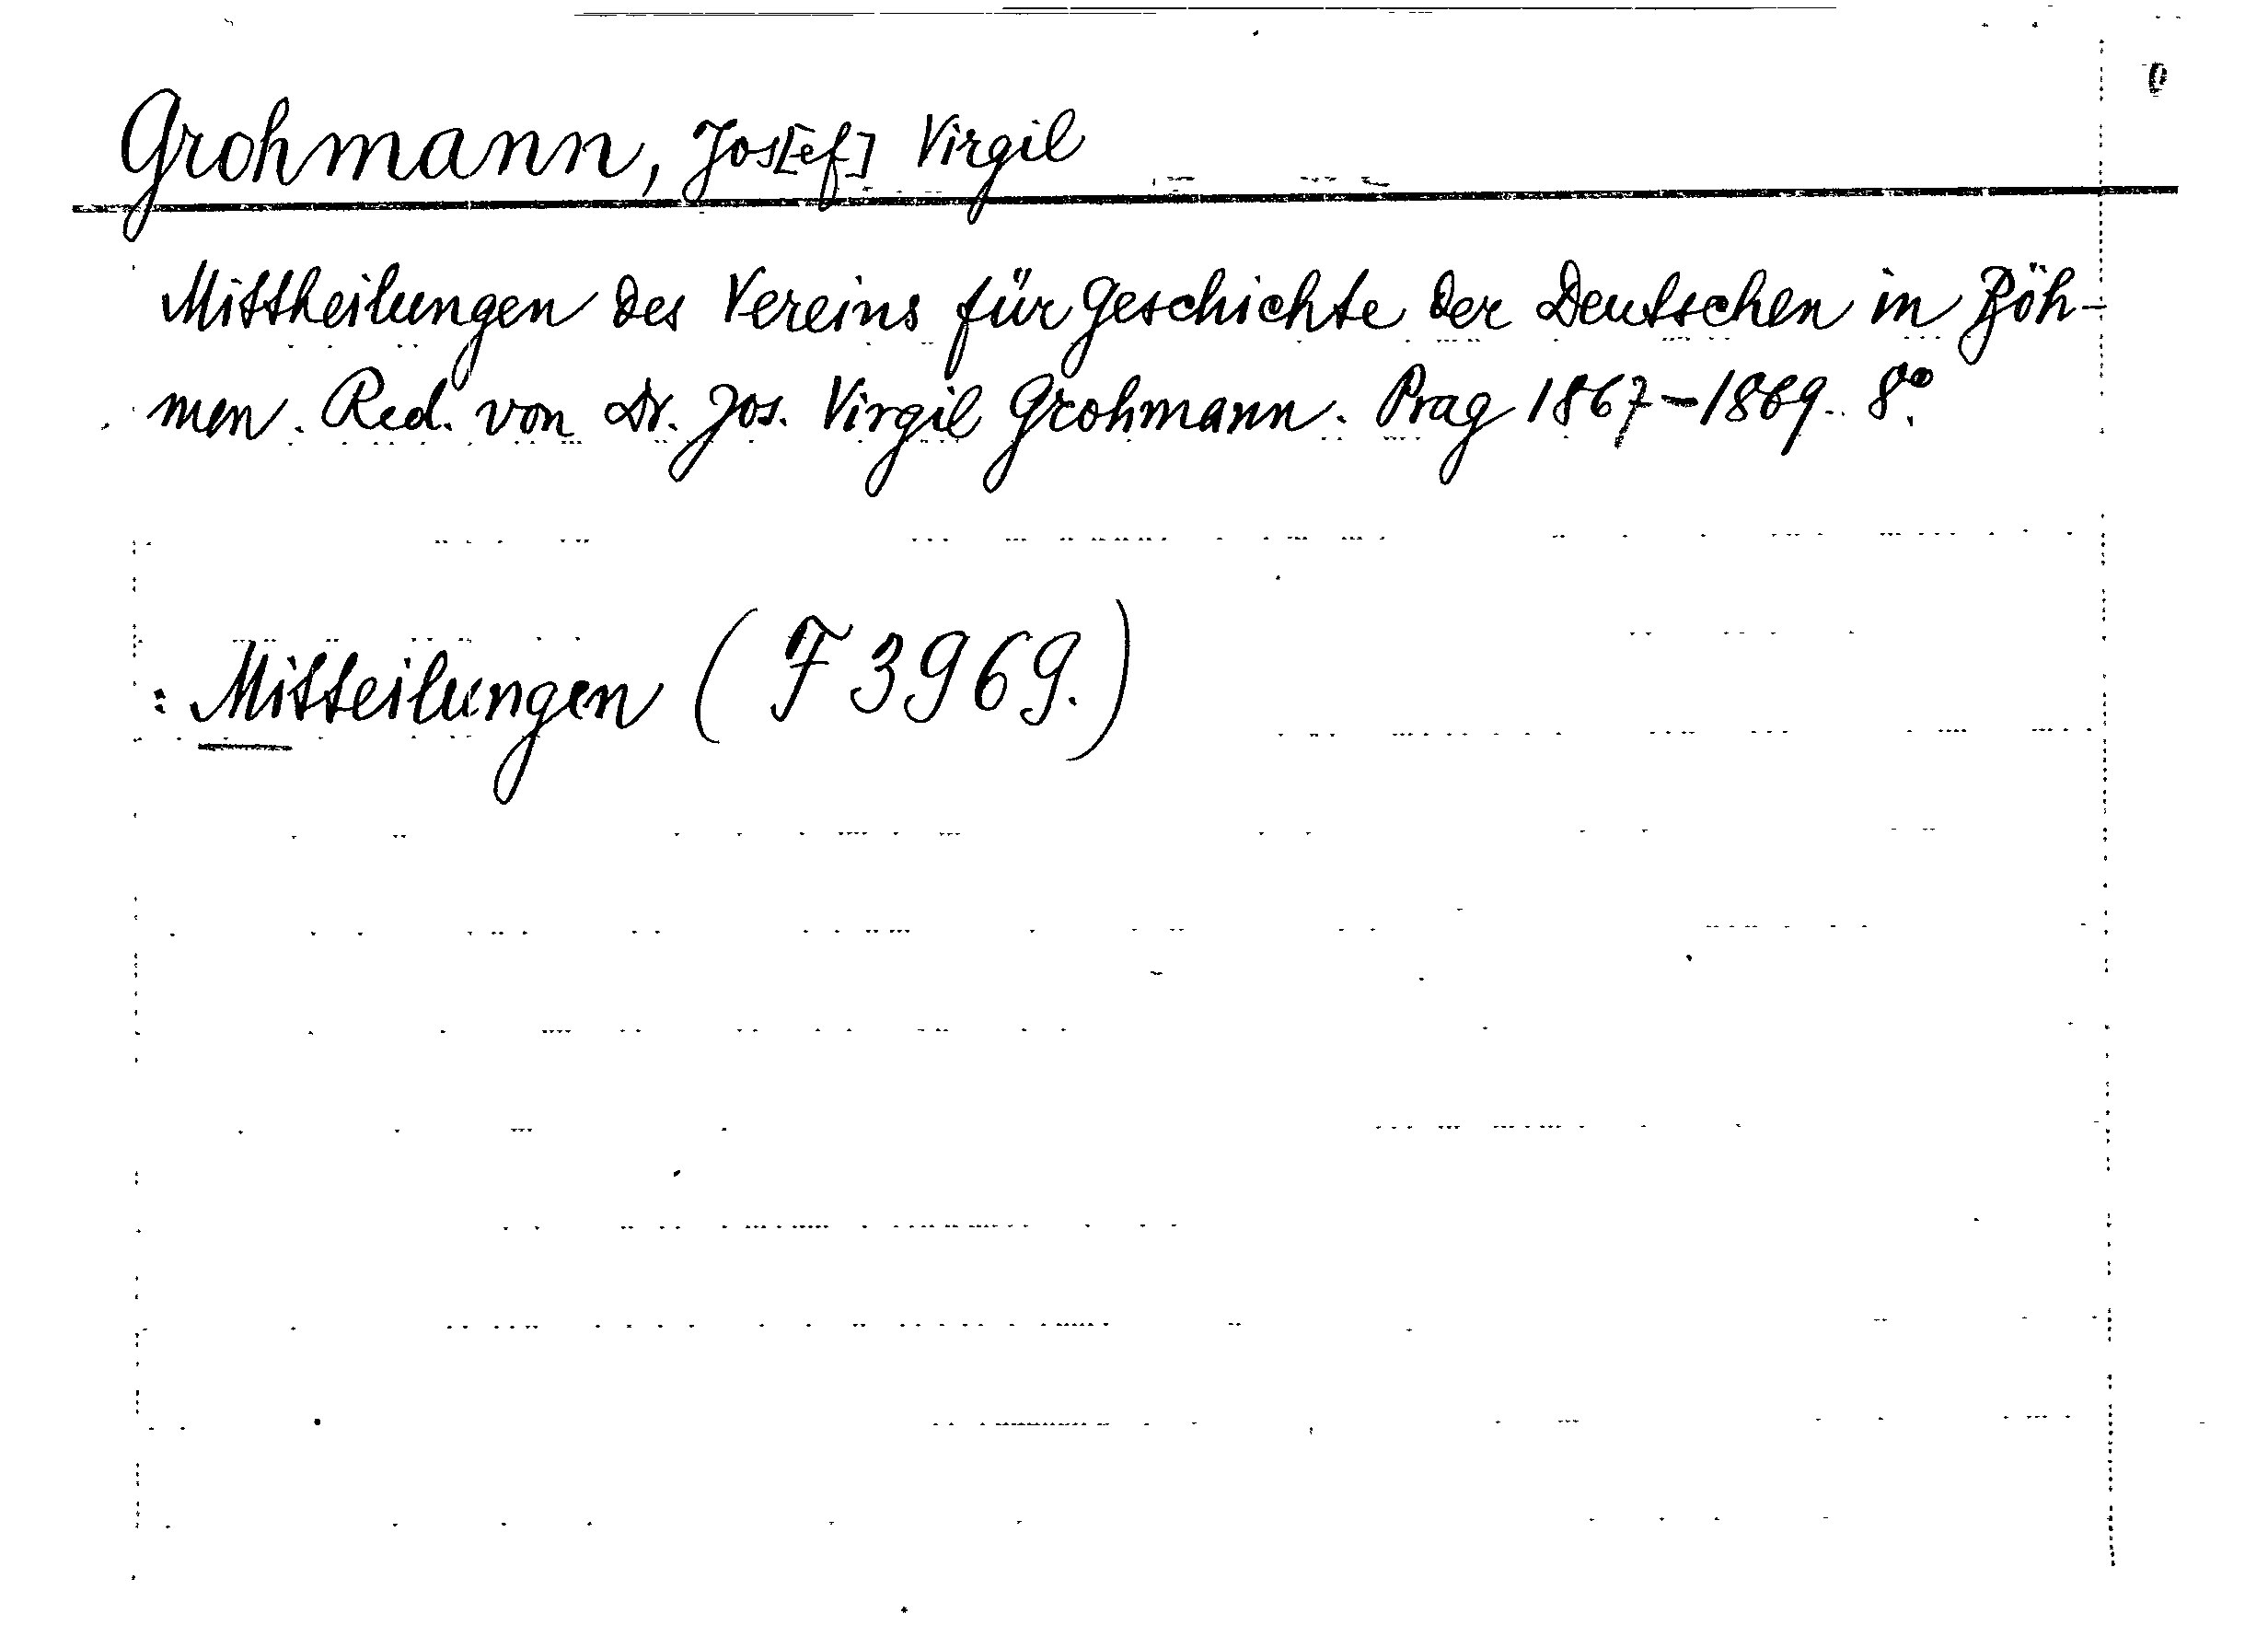 Grohmann, Jos[ef] Virgil
Mittheilungen des Vereins für Geschichte der Deutschen in Böh-
men. Red. von Dr. Jos. Virgil Grohmann. Prag 1867-1869. 8°.
: Mitteilungen (F 3969.)